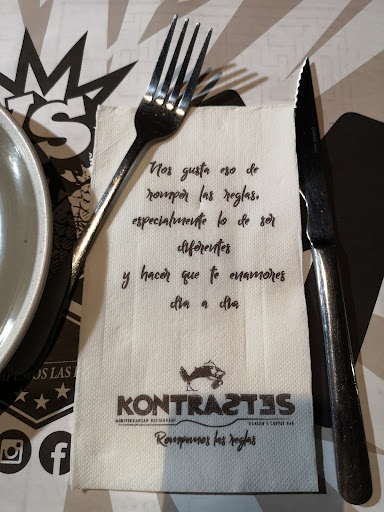 Nos gusta eso de
romper las reglas,
especialmente lo de ser
diferentes
y hacer que te enamores
día a día
KONTRASTES
MEDITERRANEAN RESTAURANT
HARLEM'S COFFEE BAR
Rompamos las reglas